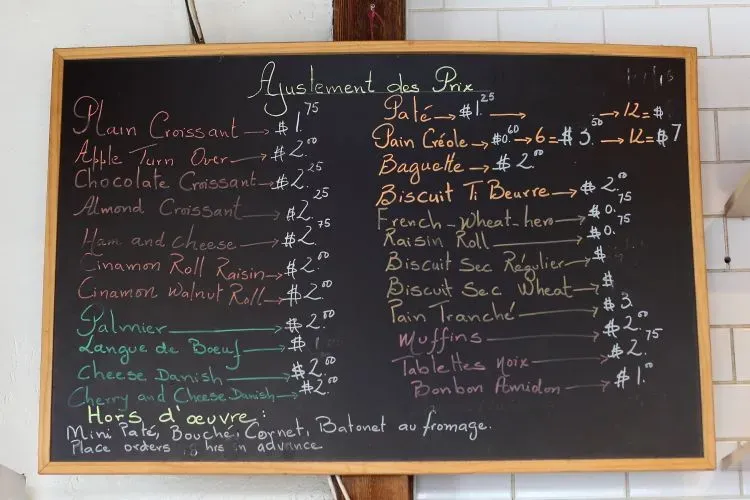 Ajustement des Prix
Plain Croissant → $1.75
Apple Turn Over → $2.00
Chocolate Croissant → $2.25
Almond Croissant → $2.25
Ham and cheese → $2.75
Cinamon Roll Raisin → $2.00
Cinamon Walnut Roll → $2.00
Palmier → $2.00
Langue de Bœuf → $1
Cheese Danish → $2.00
Cherry and Cheese Danish → $2.00
Hors d'œuvre:
Mini Paté, Bouché, Cornet, Batonet au fromage.
Place orders hrs in advance
Paté → $1.25 → → 12 = $
Pain Créole → $0.60 → 6 = $3.50 → 12 = $7
Baguette → $2.00
Biscuit Ti Beurre → $2.00
French_Wheat_hero → $0.75
Raisin Roll → $0.75
Biscuit Sec Régulier → $
Biscuit Sec Wheat → $
Pain Tranché → $3.
Muffins → $2.00
Tablettes noix → $2.75
Bonbon Amidon → $1.00